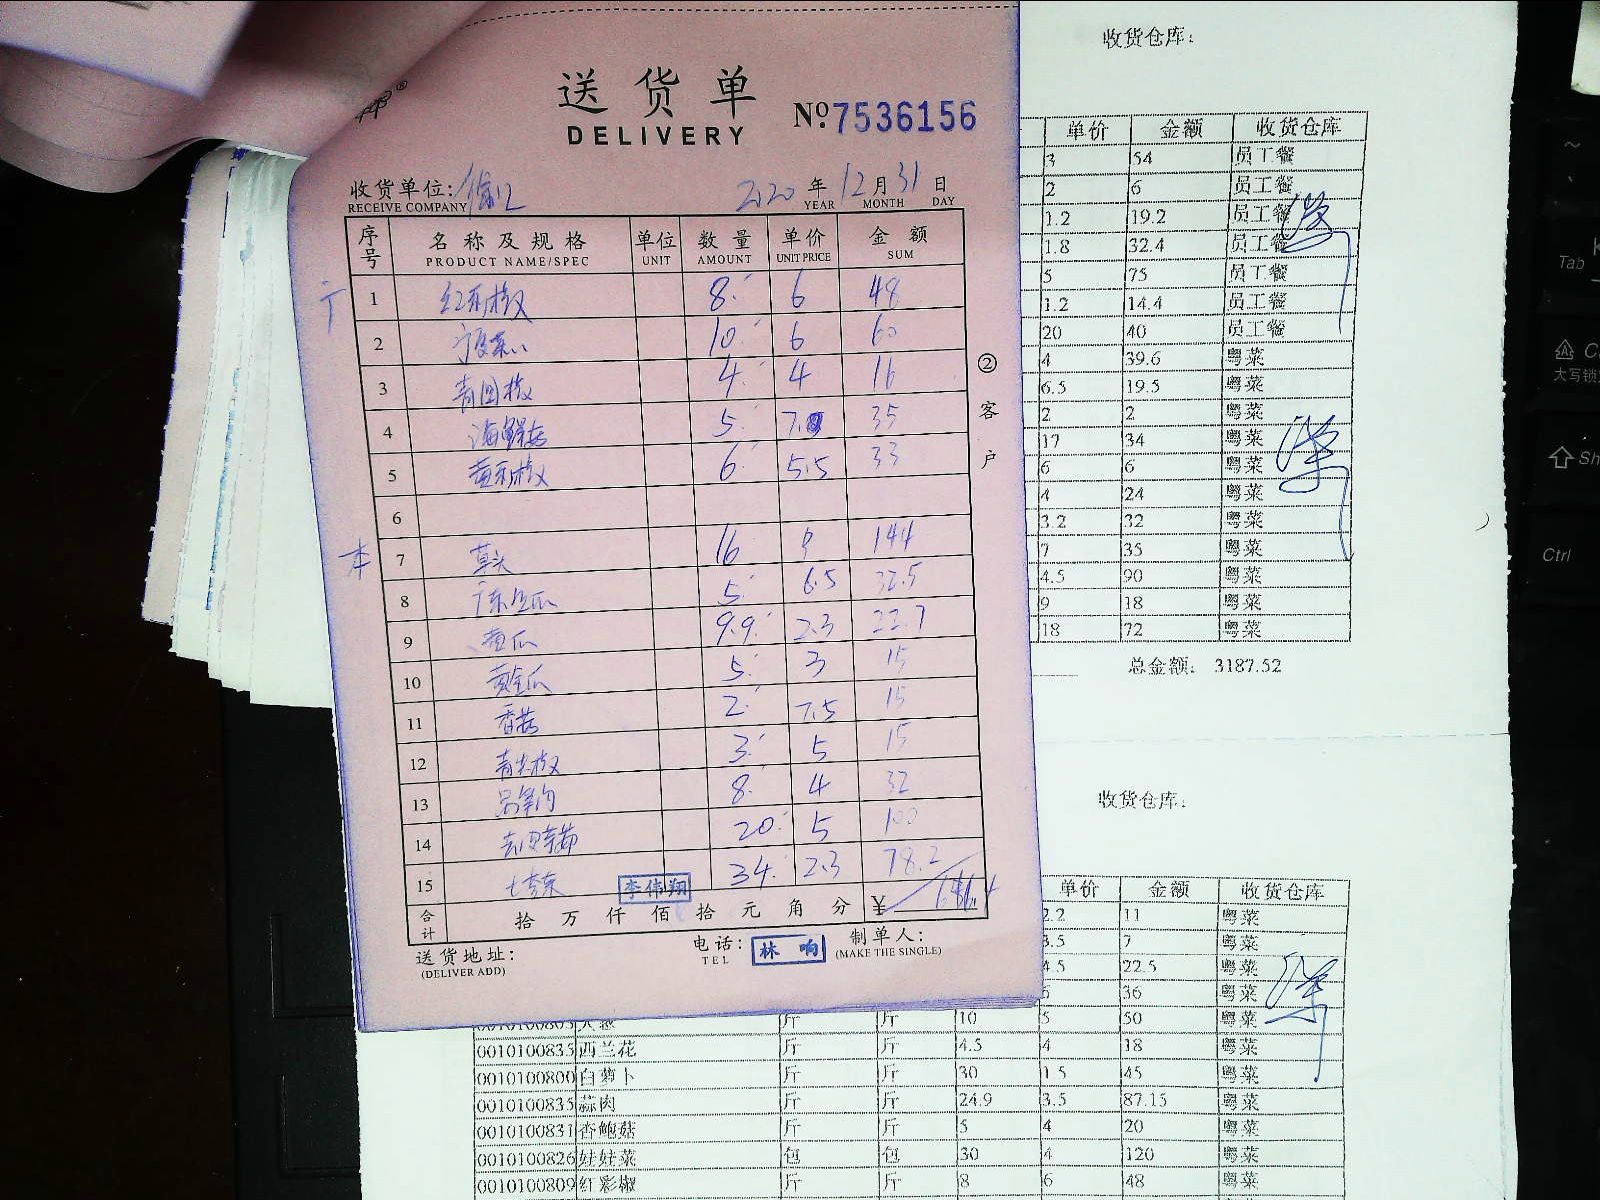 送货单
DELIVERY
№ 7536156
收货单位:
RECEIVE COMPANY
2020 年 12 月 31 日
YEAR MONTH DAY
序号 名称及规格 单位 数量 单价 金额
PRODUCT NAME/SPEC UNIT AMOUNT UNIT PRICE SUM
1 红彩椒 8 6 48
2 10 6 60
3 青圆椒 4 4 16
4 海鲜菇 5 7 35
5 黄彩椒 6 5.5 33
6
7 草头 16 9 144
8 5 6.5 32.5
9 黄瓜 9.9 2.3 22.7
10 黄金瓜 5 3 15
11 香菇 2 7.5 15
12 青尖椒 3 5 15
13 8 4 32
14 20 5 100
15 七菜 34 2.3 78.2
李伟翔
合计 拾 万 仟 佰 拾 元 角 分 ¥
送货地址:
(DELIVER ADD)
电话:
TEL
林响
制单人:
(MAKE THE SINGLE)
②客户
收货仓库:
单价 金额 收货仓库
3 54 员工餐
2 6 员工餐
1.2 19.2 员工餐
1.8 32.4 员工餐
5 75 员工餐
1.2 14.4 员工餐
20 40 员工餐
4 39.6 粤菜
6.5 19.5 粤菜
2 2 粤菜
17 34 粤菜
6 6 粤菜
4 24 粤菜
3.2 32 粤菜
7 35 粤菜
4.5 90 粤菜
9 18 粤菜
18 72 粤菜
总金额: 3187.52
收货仓库:
单价 金额 收货仓库
2.2 11 粤菜
3.5 7 粤菜
4.5 22.5 粤菜
36 粤菜
斤 斤 10 5 50 粤菜
0010100835 西兰花 斤 斤 4.5 4 18 粤菜
0010100800 白萝卜 斤 斤 30 1.5 45 粤菜
0010100835 蒜肉 斤 斤 24.9 3.5 87.15 粤菜
0010100831 杏鲍菇 斤 斤 5 4 20 粤菜
0010100826 娃娃菜 包 包 30 4 120 粤菜
0010100809 红彩椒 斤 斤 8 6 48 粤菜
Tab
大写锁
Ctrl